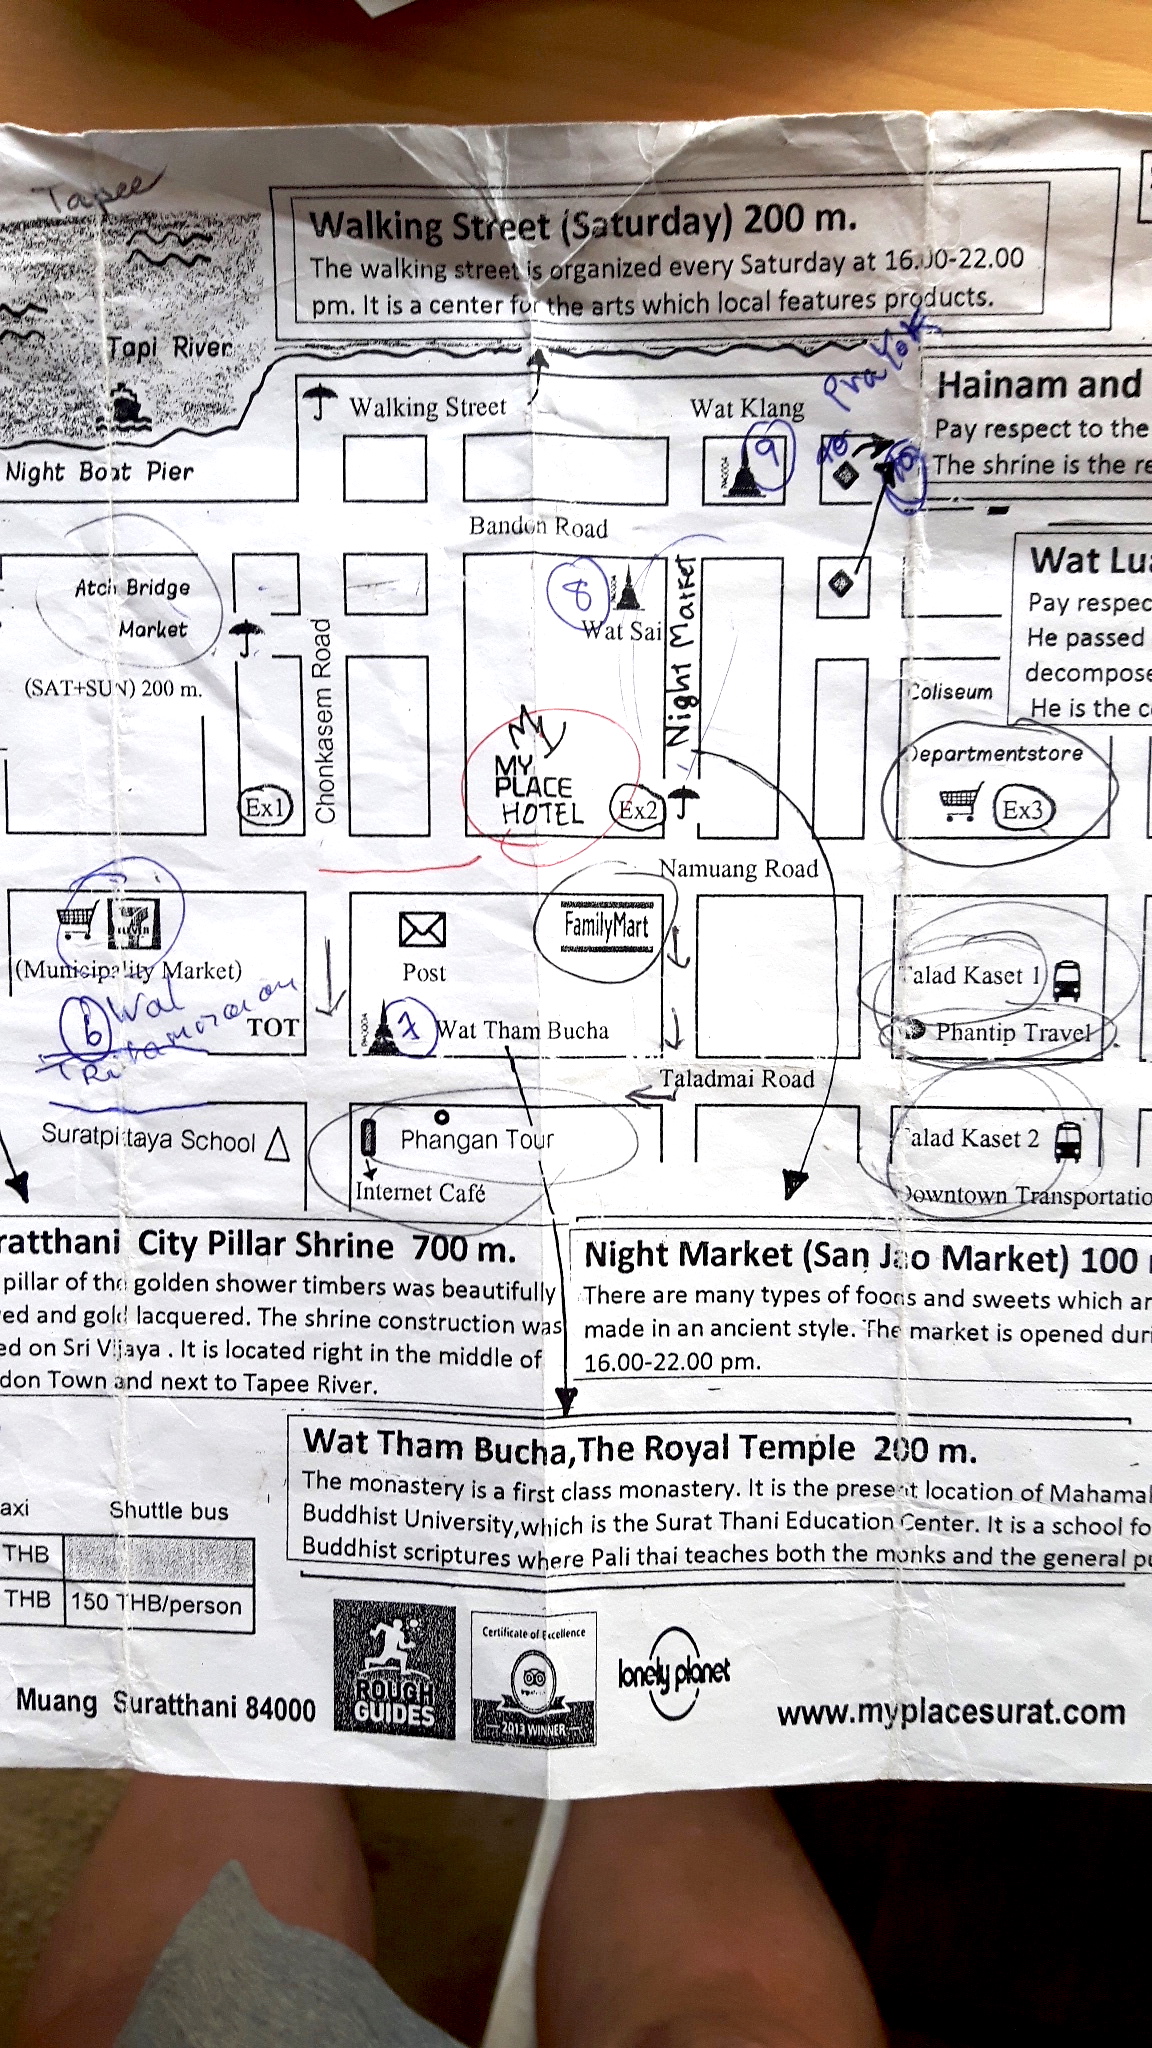 Tapee
Walking Street (Saturday) 200 m.
The walking street is organized every Saturday at 16.00-22.00
pm. It is a center for the arts which local features products.
Tapi River
Night Boat Pier
Walking Street
Wat Klang
9
Hainam and
Pay respect to the
The shrine is the re
Bandon Road
Atch Bridge
Market
(SAT+SUN) 200 m.
Chonkasem Road
8
Wat Sai
Night Market
Wat Lua
Pay respec
He passed
decompose
He is the c
Coliseum
Departmentstore
Ex1
MY
MY
PLACE
HOTEL
Ex2
Ex3
Namuang Road
7
ELEVEN
(Municipality Market)
6
Wat
TOT
Post
FamilyMart
7
Wat Tham Bucha
Talad Kaset 1
Phantip Travel
Taladmai Road
Suratpittaya School
Phangan Tour
Internet Café
Talad Kaset 2
Downtown Transportatio
ratthani City Pillar Shrine 700 m.
pillar of the golden shower timbers was beautifully
ved and gold lacquered. The shrine construction was
ed on Sri Vijaya . It is located right in the middle of
don Town and next to Tapee River.
Night Market (San Jao Market) 100
There are many types of foods and sweets which ar
made in an ancient style. The market is opened duri
16.00-22.00 pm.
Wat Tham Bucha,The Royal Temple 200 m.
The monastery is a first class monastery. It is the present location of Mahamal
Buddhist University,which is the Surat Thani Education Center. It is a school fo
Buddhist scriptures where Pali thai teaches both the monks and the general pu
axi Shuttle bus
THB
THB 150 THB/person
Muang Suratthani 84000
ROUGH
GUIDES
Certificate of Excellence
2013 WINNER
lonely planet
www.myplacesurat.com